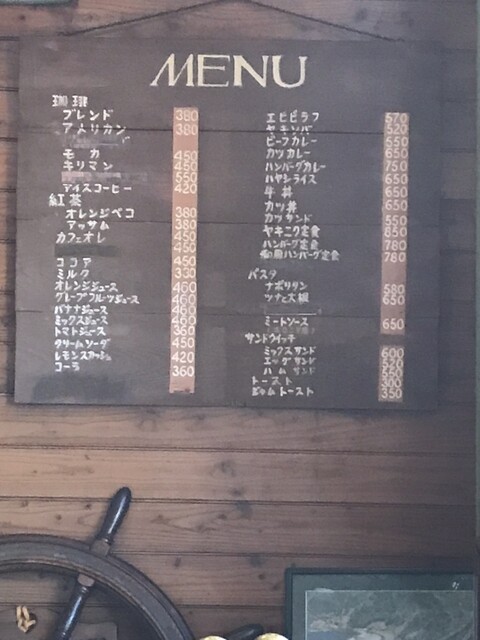 MENU
珈琲
ブレンド 380
アメリカン 380
モカ 450
キリマン 450
550
アイスコーヒー 420
紅茶
オレンジペコ 380
アッサム 380
カフェオレ 450
450
ココア 450
ミルク 330
オレンジジュース 460
グレープフルーツジュース 460
バナナジュース 460
ミックスジュース 460
トマトジュース 360
クリームソーダ 450
レモンスカッシュ 420
コーラ 360
エビピラフ 570
ヤキソバ 520
ビーフカレー 550
カツカレー 650
ハンバーグカレー 750
ハヤシライス 650
牛丼 650
カツ丼 650
カツサンド 550
ヤキニク定食 850
ハンバーグ定食 780
和風ハンバーグ定食 780
パスタ
ナポリタン 580
ツナと大根 650
ミートソース 650
サンドウイッチ
ミックスサンド 600
エッグサンド
ハムサンド
トースト 300
ジャムトースト 350